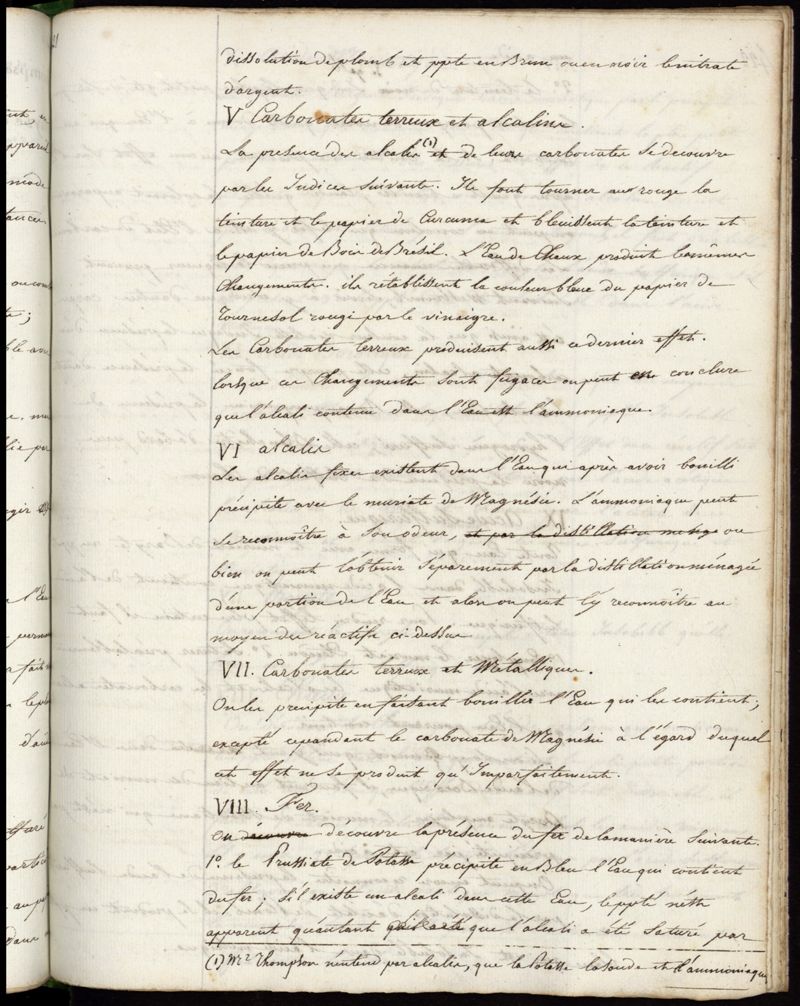 dissolution de plomb et ppte en Brun ou en noir le nitrate
d'argent.
V Carbonates terreux et alcalins.
La presence des alcalis (1) et de leurs carbonates se decouvre
par les Indices suivants. Ils font tourner au rouge la
teinture et le papier de Curcuma et bleuissent la teinture et
le papier de Bois de Brésil. L'Eau de Chaux produit les mêmes
Changements. ils rétablissent la couleur bleue du papier de
Tournesol rougi par le vinaigre.
Les Carbonates terreux produisent aussi ce dernier effet.
lorsque ces Changements sont fugaces on peut en conclure
que l'alcali contenu dans l'Eau est l'ammoniaque.
VI alcalis
Les alcalis fixes existent dans l'Eau qui après avoir bouilli
précipite avec le muriate de Magnésie. L'ammoniaque peut
se reconnoître à son odeur, et par la distillation ménagé ou
bien on peut l'obtenir séparement par la distillation ménagée
d'une portion de l'Eau et alors on peut l'y reconnoître au
moyen des réactifs ci-dessus
VII. Carbonates terreux et Métalliques.
On les precipite en faisant bouillir l'Eau qui les contient;
excepté cependant le carbonate de Magnésie à l'égard duquel
cet effet ne se produit qu'Imparfaitement.
VIII. Fer.
On découvre découvre la présence du fer de la manière suivante.
1º. le Prussiate de Potasse précipite en Bleu l'Eau qui contient
du fer; s'il existe un alcali dans cette Eau, le ppté n'est
apparent qu'autant qu'il a été que l'alcali a été saturé par
(1) Mr Thompson n'entend par alcalis, que la Potasse la soude et l'ammoniaque